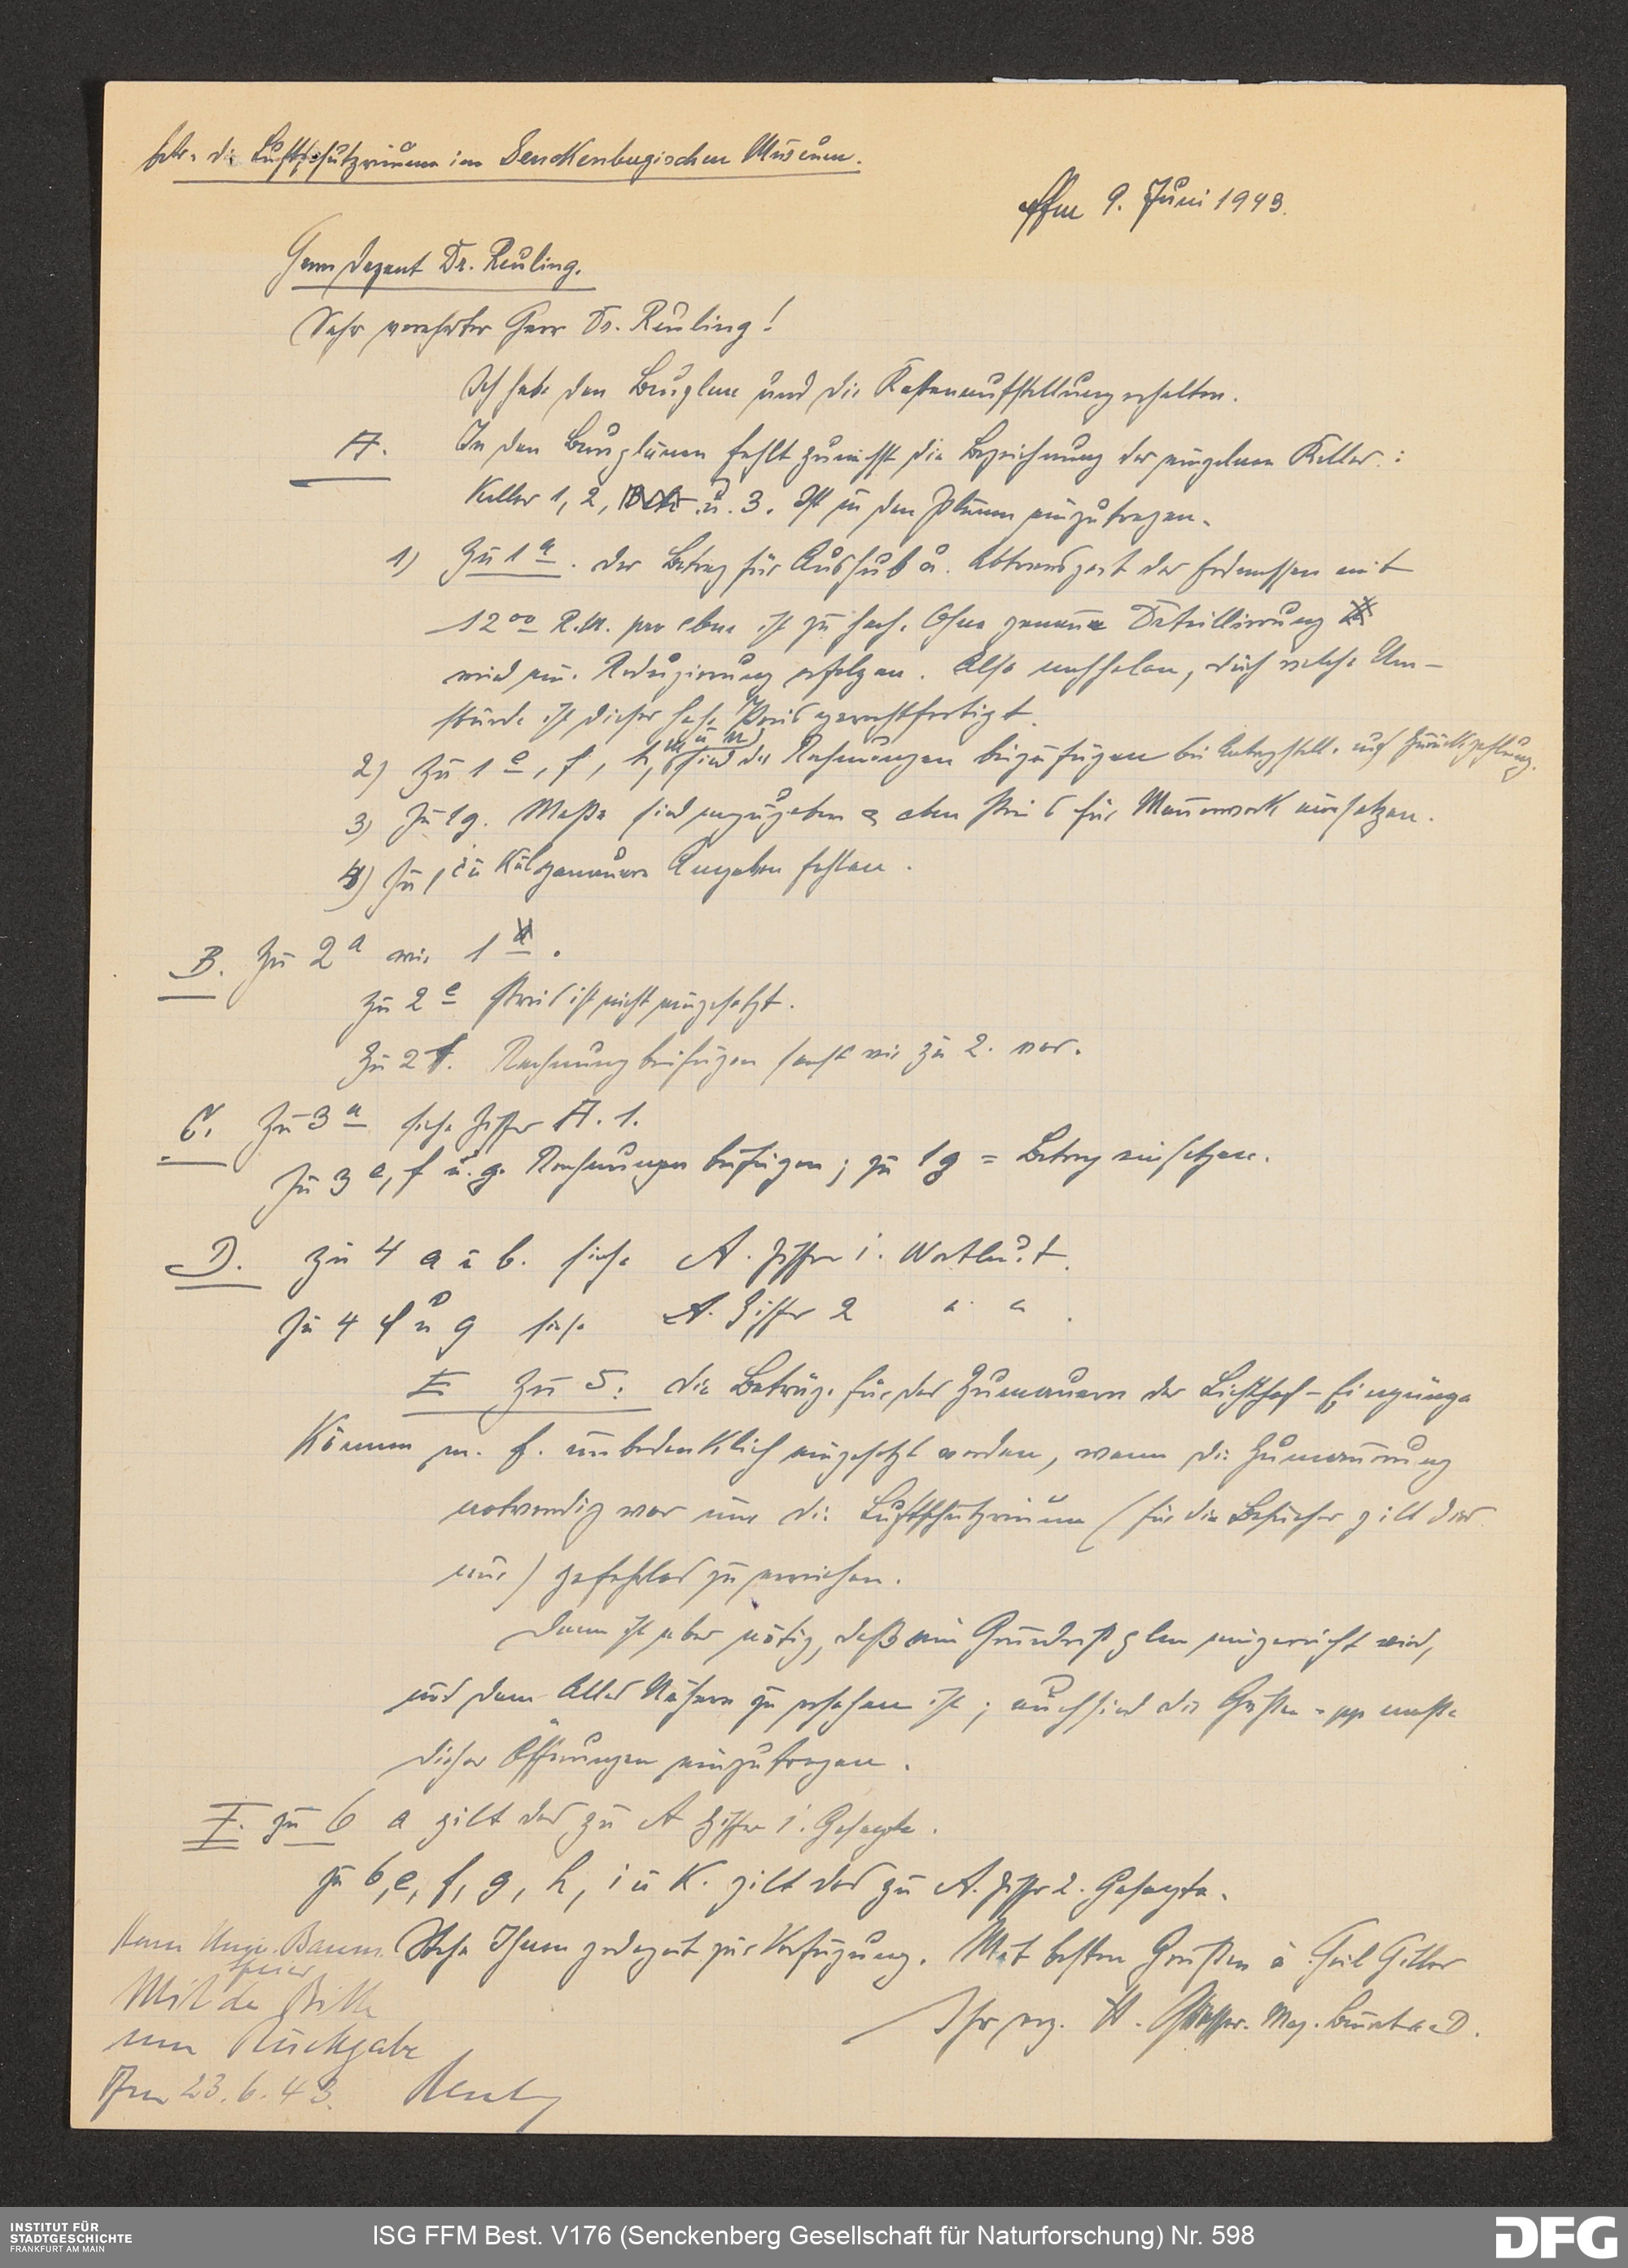 betr. die Luftschutzräume im Senckenbergischen Museum.
Ffm 9. Juni 1943.
Herrn Dezent Dr. Reuling.
Sehr verehrter Herr Dr. Reuling!
Ich habe den Bauplan und die Kostenaufstellung erhalten.
A. In den Bauplänen fehlt zunächst die Bezeichnung der einzelnen Keller:
Keller 1, 2, u. 3. Ist in den Plänen einzutragen.
1) Zu 1 a. Der Betrag für Aushub u. Abtransport der Erdmassen mit
12 00 R.M. pro cbm ist zu hoch. Ohne genaue Detaillierung
wird eine Reduzierung erfolgen. Also nachholen, durch welche Um-
stände ist dieser hohe Preis gerechtfertigt.
2) Zu 1 e, f, h, m u n, sind die Rechnungen beizufügen bei Antragstell. auf Zurückzahlung.
3) Zu 1g. Maße sind anzugeben & eben Preis für Mauerwerk einsetzen.
4) Zu i u k genauere Angaben fehlen.
B. Zu 2 a wie 1 a.
Zu 2 e Preis ist nicht eingesetzt.
Zu 2 f. Rechnung beifügen sonst wie zu 2. vor.
C. Zu 3 a siehe Ziffer A. 1.
Zu 3 e, f u. g. Rechnungen beifügen; zu 1g = Betrag einsetzen.
D. Zu 4 a u b. siehe A. Ziffer 1. Wortlaut.
Zu 4 f u g siehe A. Ziffer 2 " ".
E Zu 5: Die Beträge für das Zumauern der Lichthof-Eingänge
können m. E. unbedenklich eingesetzt werden, wenn die Zumauerung
notwendig war um die Luftschutzräume (für die Besucher gilt das
nur) gefahrlos zu erreichen.
Dann ist aber nötig, daß ein Grundrißplan eingereicht wird,
aus dem Alles Nähere zu ersehen ist; auch sind die Größen-pp maße
dieser Öffnungen einzutragen.
F. Zu 6 a gilt das zu A Ziffer 1. Gesagte.
Zu 6, e, f, g, h, i u k. gilt das zu A. Ziffer 2. Gesagte.
Stehe Ihnen jederzeit zur Verfügung. Mit besten Grüßen u. Heil Hitler
Ihr erg. Mag. Baurat a. D.
Herrn Baum
Mit der Bitte
um Rückgabe
Ffm 23.6.43. Reuling
INSTITUT FÜR
STADTGESCHICHTE
FRANKFURT AM MAIN
ISG FFM Best. V176 (Senckenberg Gesellschaft für Naturforschung) Nr. 598
DFG